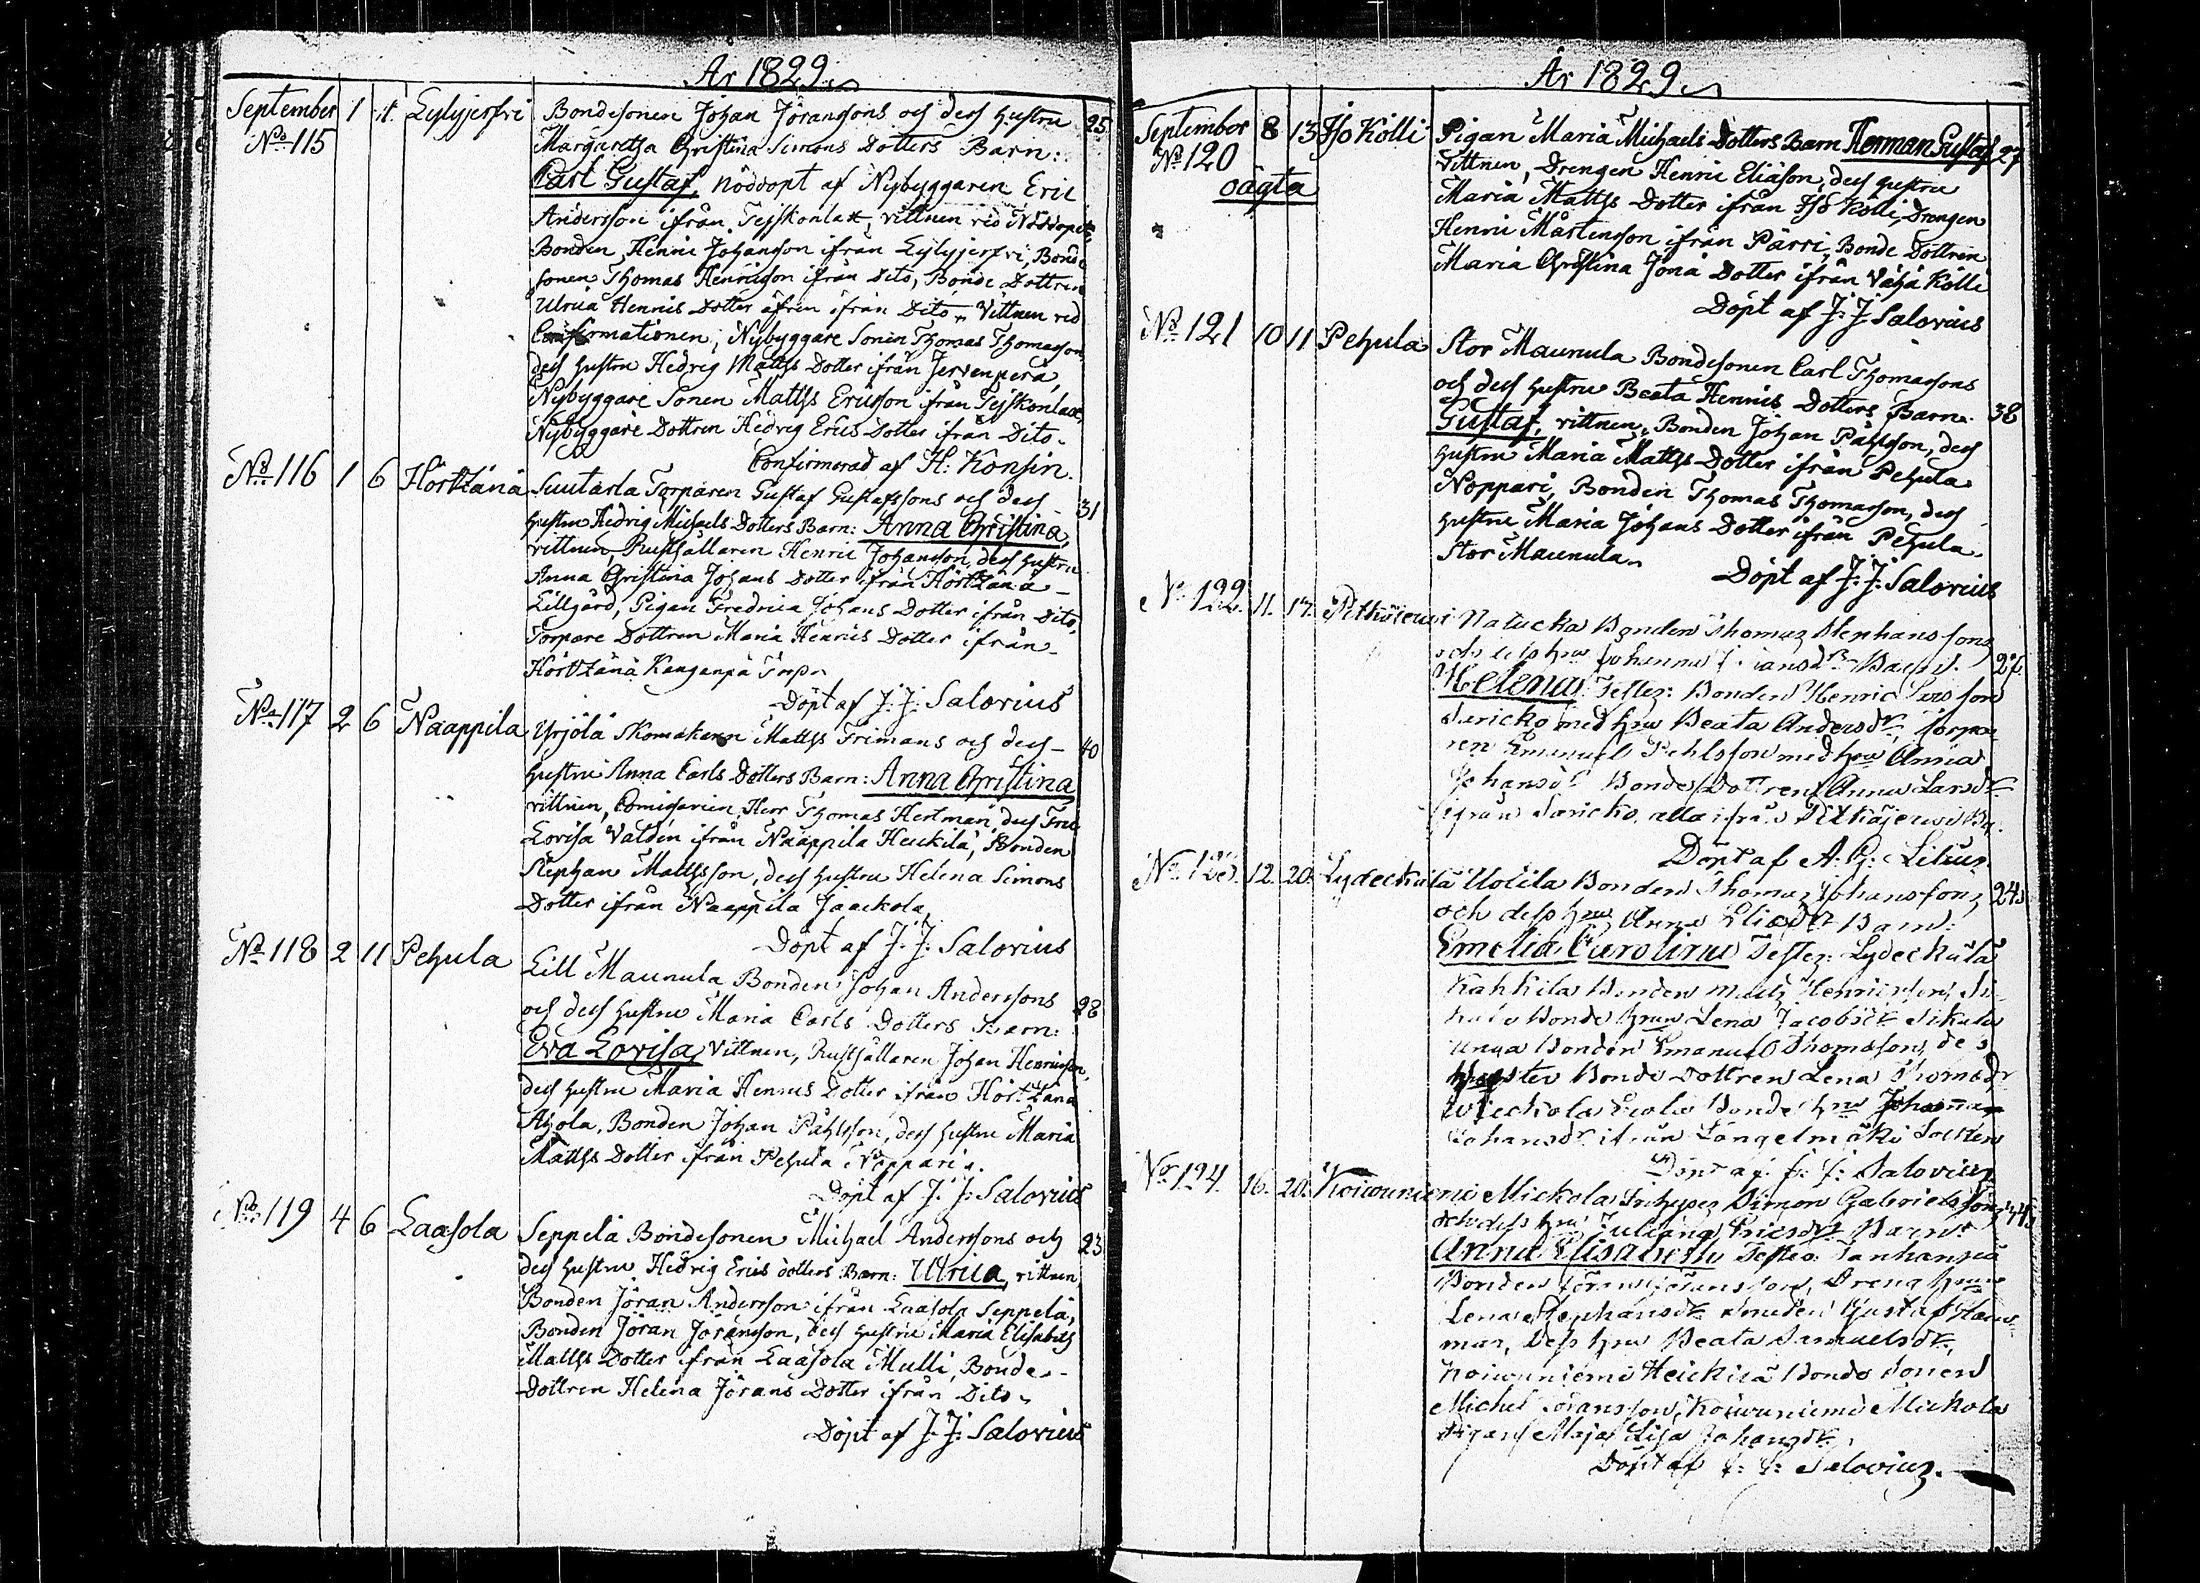 År 1829
September 1 4 Lylyjerfvi Bondesonen Johan Joransons och dess hustru 25
No 115 Margaretha Christina Simons Dotters Barn:
Carl Gustaf, nöddöpt af Nybyggaren Eric
Andersson ifrån Tesskonlax, vittnen vid Nöddopet,
Bonden Henric Johanson ifrån Lylyjerfvi, Bonde
sonen Thomas Henricson ifrån Dito, Bonde Dottren
Ulrica Henrics Dotter äfven ifrån Dito. Vittnen vid
Confirmationen, Nybyggare Sonen Thomas Thomasson,
dess hustru Hedvig Matths Dotter ifrån Jervenperä,
Nybyggare Sonen Matths Ericsson ifrån Tesskonlax,
Nybyggare Dottren Hedvig Erics Dotter ifrån Dito.
Confirmerad af H: Konsin.
No 116 1 6 Hörttänä Suutarla Torparen Gustaf Gustafssons och dess 31
hustru Hedvig Michaels Dotters Barn: Anna Christina,
vittnen, Rusthållaren Henric Johansson, dess hustru
Anna Christina Johans Dotter ifrån Hörttänä
Lillgård, Pigan Fredrica Johans Dotter ifrån Dito,
Torpare Dottren Maria Henrics Dotter ifrån
Hörttänä Kangenpä Torp.
Döpt af J: J: Salovius
No 117 2 6 Naappila Yrjölä Skomakaren Matths Frimans och dess 40
hustru Anna Carls Dotters Barn: Anna Christina
vittnen, Comissarien Herr Thomas Hertman, dess Fru
Lovisa Valden ifrån Naappila Heickilä, Bonden
Stephan Mathsson, dess hustru Helena Simons
Dotter ifrån Naappila Jaackola,
Döpt af J: J: Salovius
No 118 2 11 Pehula Lill Maunula Bonden Johan Anderssons
och dess hustru Maria Carls Dotters Barn: 28
Eva Lovisa, Vittnen, Rusthållaren Johan Henricsson,
dess hustru Maria Henrics Dotter ifrån Hörttänä
Ahola, Bonden Johan Påhlsson, dess hustru Maria
Matths Dotter ifrån Pehula Noppari.
Döpt af J: J: Salovius
No 119 4 6 Laasola Seppelä Bondesonen Michael Anderssons och 23
dess hustru Hedvig Erics dotters Barn: Ulrica, vittnen,
Bonden Jöran Andersson ifrån Laasola Seppelä,
Bonden Jöran Joransson, dess hustru Maria Elisabeth
Matths Dotter ifrån Laasola Mulli, Bonde
Dottren Helena Jörans Dotter ifrån Dito.
Döpt af J: J: Salovius
År 1829
September 8 13 Iso Kölli Pigan Maria Michaels Dotters Barn Herman Gustaf 27
No 120 Vittnen, Drengen Henric Eliasson, dess hustru
oägta Maria Matths Dotter ifrån Iso Kölli, Drengen
Henric Mårtensson ifrån Pärri, Bonde Dottren
Maria Christina Jona Dotter ifrån Vähä Kölli
Döpt af J: J: Salovius
No 121 10 11 Pehula Stor Maunula Bondesonen Carl Thomassons
och dess hustru Beata Henrics Dotters Barn. 38
Gustaf, vittnen, Bonden Johan Påhlsson, dess
hustru Maria Matths Dotter ifrån Pehula
Noppari, Bonden Thomas Thomasson, dess
hustru Maria Johans Dotter ifrån Pehula
Stor Maunula.
Döpt af J: J: Salovius
No 122. 11. 17. Pitkäjerwi Natucka Bonden Thomas Stephanssons
och dess Hru Johanna Barn. 27
Helena Testes: Bonden Henric Larsson
Saricko med hru Beata Andersdr, Torpa-
ren Emanuel Pehlsson med hru Anna
Johansdr Bonde Dottren Anna Larsdr
ifrån Saricko, alla ifrån Pitkäjerwi By.
Döpt af A. G: Lilius
No 123. 12. 20. Lydeckälä Uotila Bonden Thomas Johanssons 24
och dess Hru Anna Eliædr Barn:
Emelia Carolina Testes: Lydeckälä
Kahkila Bonden Matts Henricsson,
Bonde Hrun Lena Jacobsdr Sikula
unga Bonden Emanuel Thomsson, des
syster Bonde Dottren Lena Thomsdr
Bonde Hru Johanna
Johansdr ifrån Längelmäki Socken
Döpt af J: J: Salovius
No 124. 16. 20. Koiwuniemi Mickola Simon Gabrielssons
och dess Hru Juliana Ericsdr Barn
Anna Elisabeth Testes:
Bonden Jöran Jöransson, Dreng Hrun
Lena Stephansdr Gustaf
Dess Hru Beata Samuelsdr,
Koiwuniemi Heickilä Bonde Sonen
Michel Jöransson, Koiwuniemi Mickola
Pigan Maja Lisa Johansdr,
Döpt af J: J: Salovius.